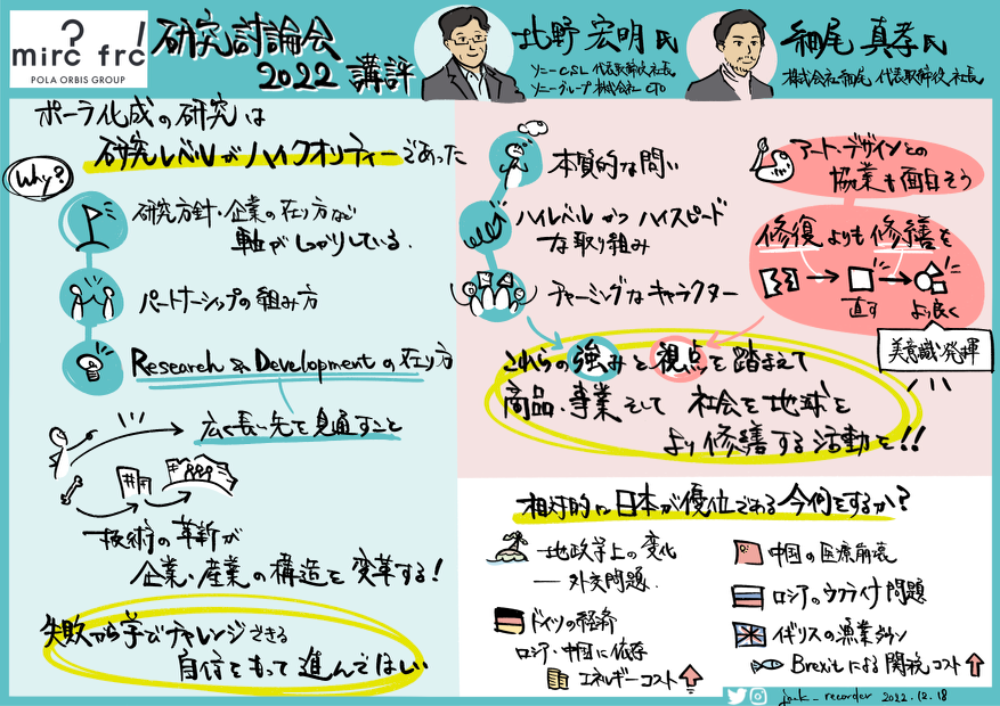 mirc frc
? !
POLA ORBIS GROUP
研究討論会
2022 講評
北野 宏明 氏
ソニーCSL 代表取締役社長
ソニーグループ株式会社 CTO
細尾 真孝 氏
株式会社 細尾 代表取締役社長
ポーラ化成の研究は
研究レベルがハイクオリティーであった
Why?
研究方針・企業の在り方など
軸がしっかりしている.
パートナーシップの組み方
Research & Development の在り方
広く長い先を見通すこと
技術の革新が
企業・産業の構造を変革する!
失敗から学びチャレンジできる
自信をもって進んでほしい
本質的な問い
ハイレベルかつハイスピード
な取り組み
チャーミングなキャラクター
アート・デザインとの
協業も面白そう
修復よりも修繕を
直す
より良く
美意識の発揮
これらの強みと視点を踏まえて
商品・事業そして 社会を地球を
より修繕する活動を!!
相対的に日本が優位である今何をするか?
地政学上の変化
― 外交問題.
ドイツの経済
ロシア・中国に依存
エネルギーコスト
中国の医療崩壊
ロシアのウクライナ問題
イギリスの漁業ダウン
Brexitによる関税コスト
jack_recorder 2022.12.18